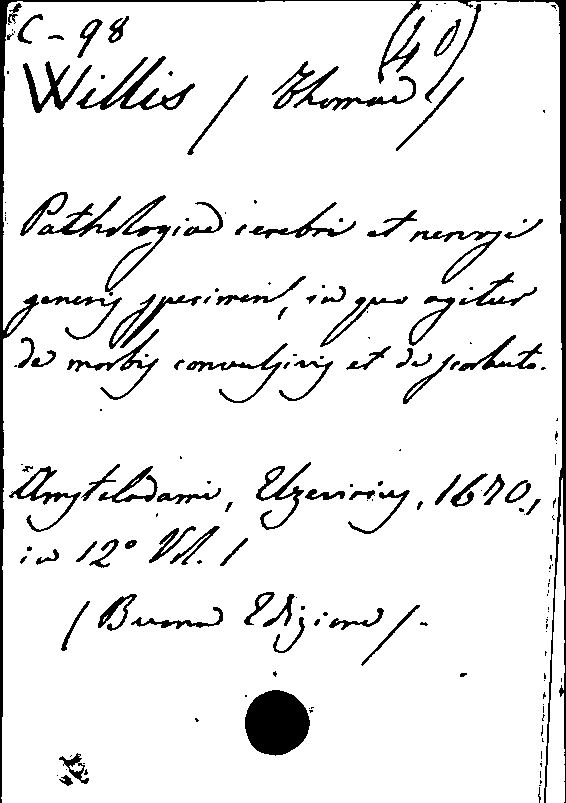 C - 98 (40)
Willis / Thomas /
Pathologiae cerebri et nervosi
generis specimen, in quo agitur
de morbis convulsivis et de scorbuto.
Amstelodami, Elzevirius, 1670.,
in 12° Vol. 1
/ Buona Edizione /.